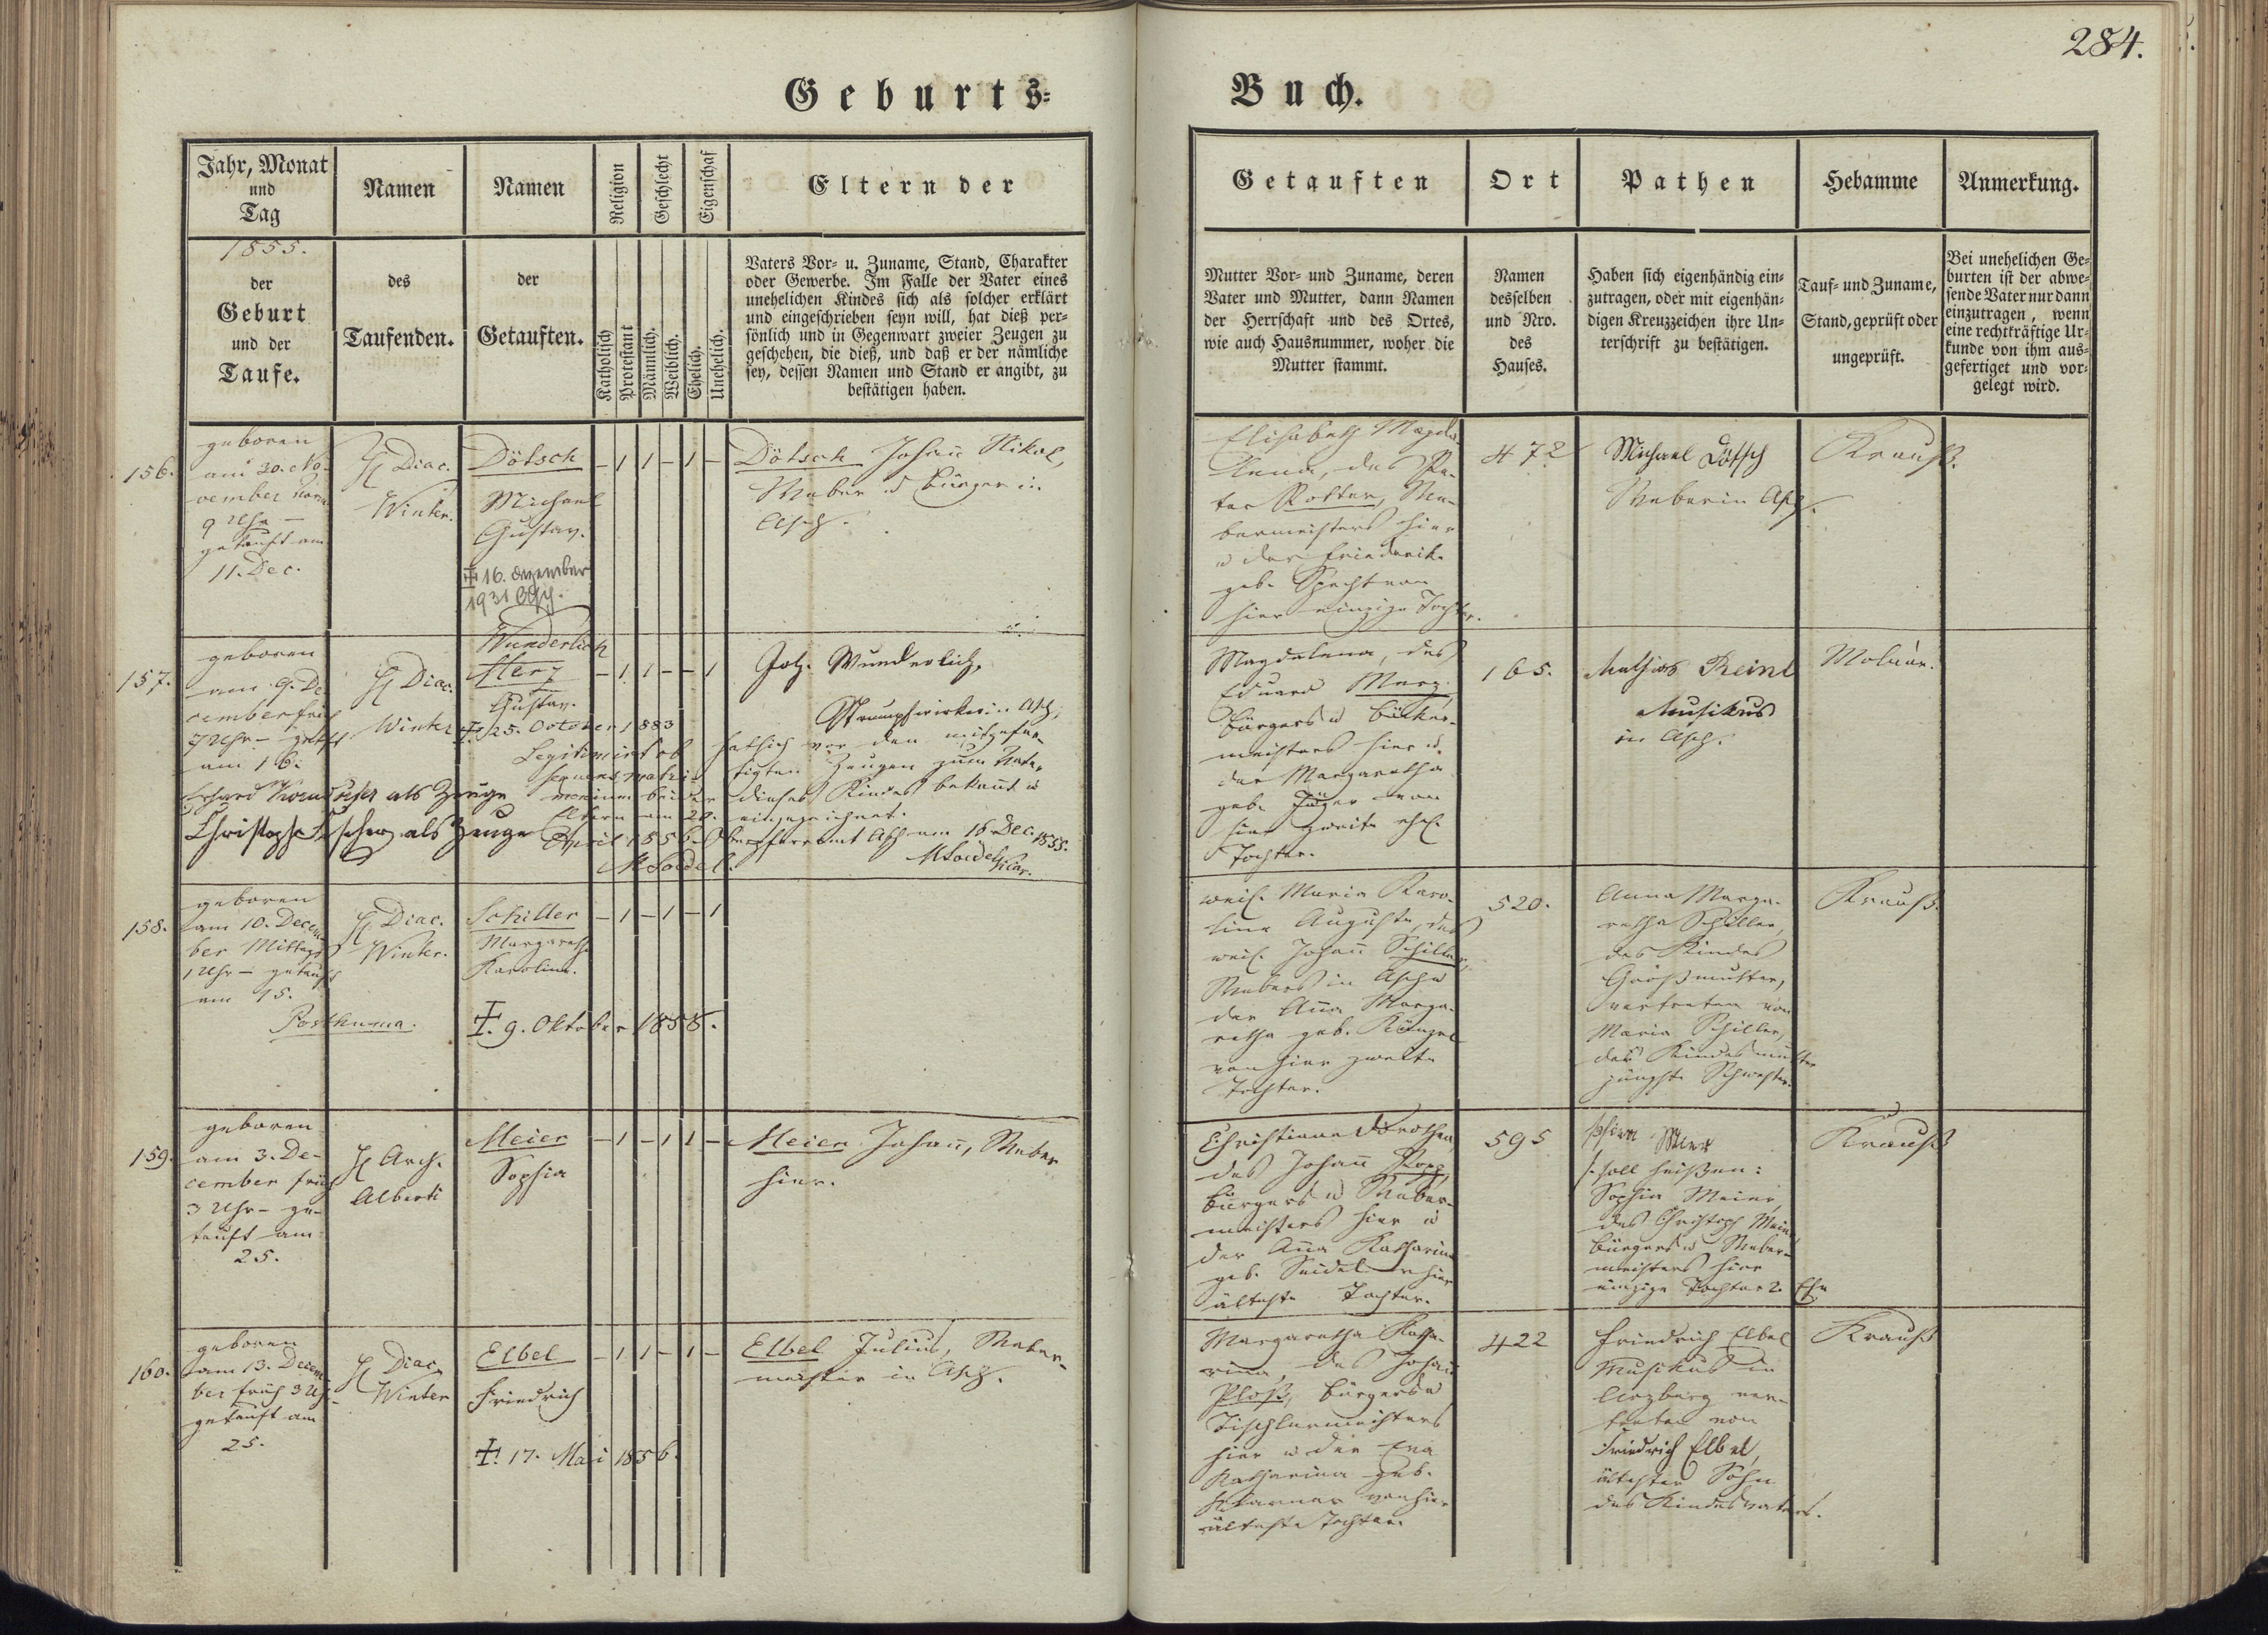 284.
Geburts=
Buch.
Jahr, Monat
und
Tag
1855.
der
Geburt
und der
Taufe.
Namen
des
Taufenden.
Namen
der
Getauften.
Religion
Katholisch
Protestant
Geschlecht
Männlich.
Weiblich.
Eigenschaf
Ehelich.
Unehelich.
Eltern der
Vaters Vor- u. Zuname, Stand, Charakter
oder Gewerbe. Im Falle der Vater eines
unehelichen Kindes sich als solcher erklärt
und eingeschrieben seyn will, hat dieß per-
sönlich und in Gegenwart zweier Zeugen zu
geschehen, die dieß, und daß er der nämliche
sey, dessen Namen und Stand er angibt, zu
bestätigen haben.
Getauften
Mutter Vor- und Zuname, deren
Vater und Mutter, dann Namen
der Herrschaft und des Ortes,
wie auch Hausnummer, woher die
Mutter stammt.
Ort
Namen
desselben
und Nro.
des
Hauses.
Pathen
Haben sich eigenhändig ein-
zutragen, oder mit eigenhän-
digen Kreuzzeichen ihre Un-
terschrift zu bestätigen.
Hebamme
Tauf- und Zuname,
Stand, geprüft oder
ungeprüft.
Anmerkung.
Bei unehelichen Ge-
burten ist der abwe-
sende Vater nur dann
einzutragen, wenn
eine rechtkräftige Ur-
kunde von ihm aus-
gefertiget und vor-
gelegt wird.
156.
geboren
am 30. No-
vember
9 Uhr –
getauft am
11. Dec.
H Diac.
Winter.
Dötsch
Michael
Gustav.
16. dezember
1931
– 1 1 – 1 –
Dötsch Johann Nikol,
Weber u Bürger in
Asch.
Elisabeth Magda-
lena, des Pe-
ter Rotter, We-
bermeisters hier
u der Friederike
geb. Specht von
hier einzige Tochter.
472
Michael Dötsch
Weber in Asch.
Krauß.
157.
geboren
am 9. De-
cember früh
7 Uhr – getft
am 16.
H Diac.
Winter
Wunderlich
Merz
Gustav.
25. October 1883
Legitimirt ob
subsequens matri-
monium beider
Eltern am 20.
April 1856
M Seidel.
– 1 1 – – 1
Joh. Wunderlich,
Strumpfwirker in Asch,
hat sich vor den mitgefer-
tigten Zeugen zum Vater
dieses Kindes bekannt u
eingezeichnet.
Oberpfarramt Asch am 16 Dec. 1855.
M Seidel Vicar.
Erhard als Zeuge
Christoph Fischer als Zeuge
Magdalena, des
Eduard Merz,
Bürgers u Bäcker-
meisters hier u.
der Margaretha
geb. Jäger von
hier zweite ehel.
Tochter.
165.
Mathias Reinl
Musikus
in Asch.
Molnár.
158.
geboren
am 10. Decem-
ber Mittags
1 Uhr – getauft
am 15.
Posthuma.
H Diac.
Winter.
Schiller
Margaretha
Karolina.
9. Oktober 1858.
– 1 – 1 – 1
weil. Maria Karo-
line Auguste, des
weil. Johann Schiller,
Webers in Asch u
der Anna Marga-
retha geb. Künzel
von hier zweite
Tochter.
520.
Anna Marga-
retha Schiller,
des Kindes
Großmutter,
vertreten von
Maria Schiller,
der Kindesmutter
jüngste Schwester.
Krauß.
159.
geboren
am 3. De-
cember früh
3 Uhr – ge-
tauft am
25.
H Arch.
Alberti
Meier
Sophia
– 1 – 1 1 –
Meier Johann, Weber
hier.
Christiane Dorothea,
des Johann Popp,
Bürgers u Weber-
meisters hier u
der Anna Katharina
geb. Seidel v hier
älteste Tochter.
595
soll heißen:
Sophia Meier,
des Christoph Meier,
Bürgers u Weber-
meisters hier
einzige Tochter 2. Ehe
Krauß
160.
geboren
am 13. Decem-
ber früh 3 Uhr
getauft am
25.
H Diac
Winter
Elbel
Friedrich
17. Mai 1856.
– 1 1 – 1 –
Elbel Julius, Weber-
meister in Asch.
Margaretha Katha-
rina, des Johann
Ploß, Bürgers u
Tischlermeisters
hier u der Eva
Katharina geb.
von hier
älteste Tochter.
422
Friedrich Elbel
Musikus in
Arzberg ver-
treten von
Friedrich Elbel,
ältester Sohn
des Kindesvaters.
Krauß